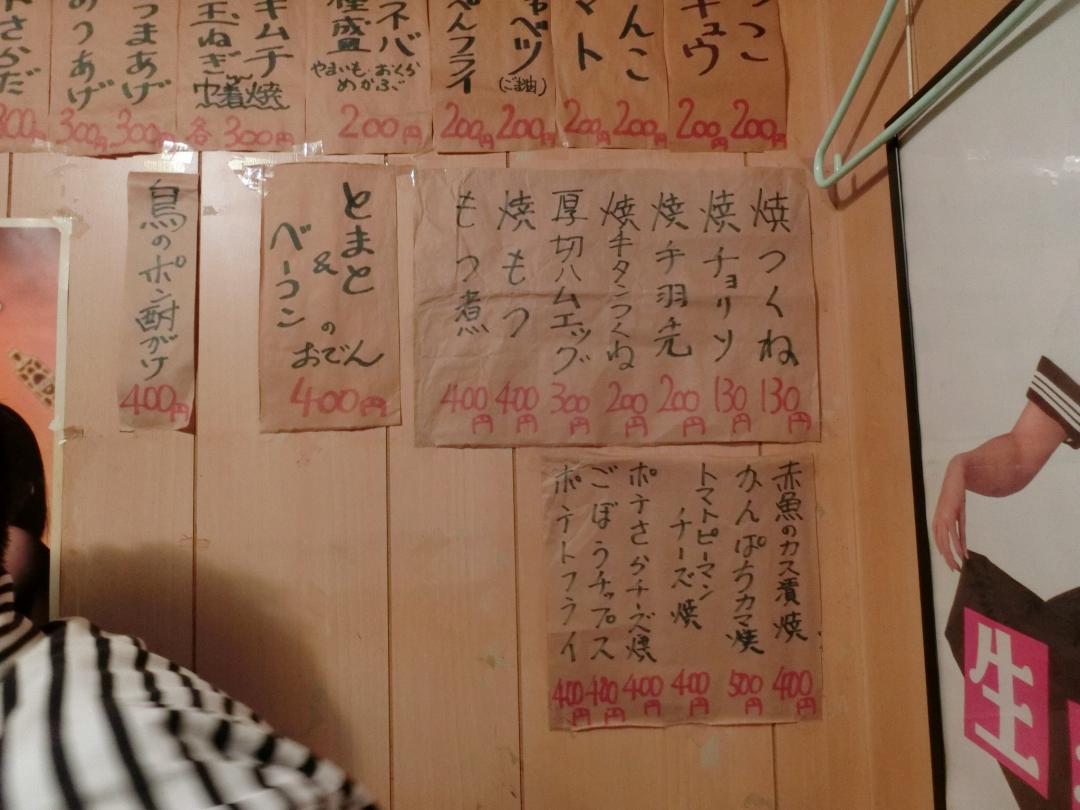 200円
200円
キュウ
200円
んこ
200円
マト
200円
ャベツ
(ごま油)
200円
ぺんフライ
200円
ネバ
種盛
やまいも・おくら
めかぶ
200円
キムチ
玉ねぎ
巾着焼
各 300円
つまあげ
300円
つあげ
300円
300円
焼つくね
130円
焼チョリソ
130円
焼手羽先
200円
焼牛タンつくね
200円
厚切ハムエッグ
300円
焼もつ
400円
もつ煮
400円
とまと
&
ベーコン
の
おでん
400円
鳥のポン酢がけ
400円
赤魚のカス漬焼
400円
かんぱちカマ焼
500円
トマトピーマン
チーズ焼
400円
ポテさらチーズ焼
400円
ごぼうチップス
400円
ポテトフライ
400円
生